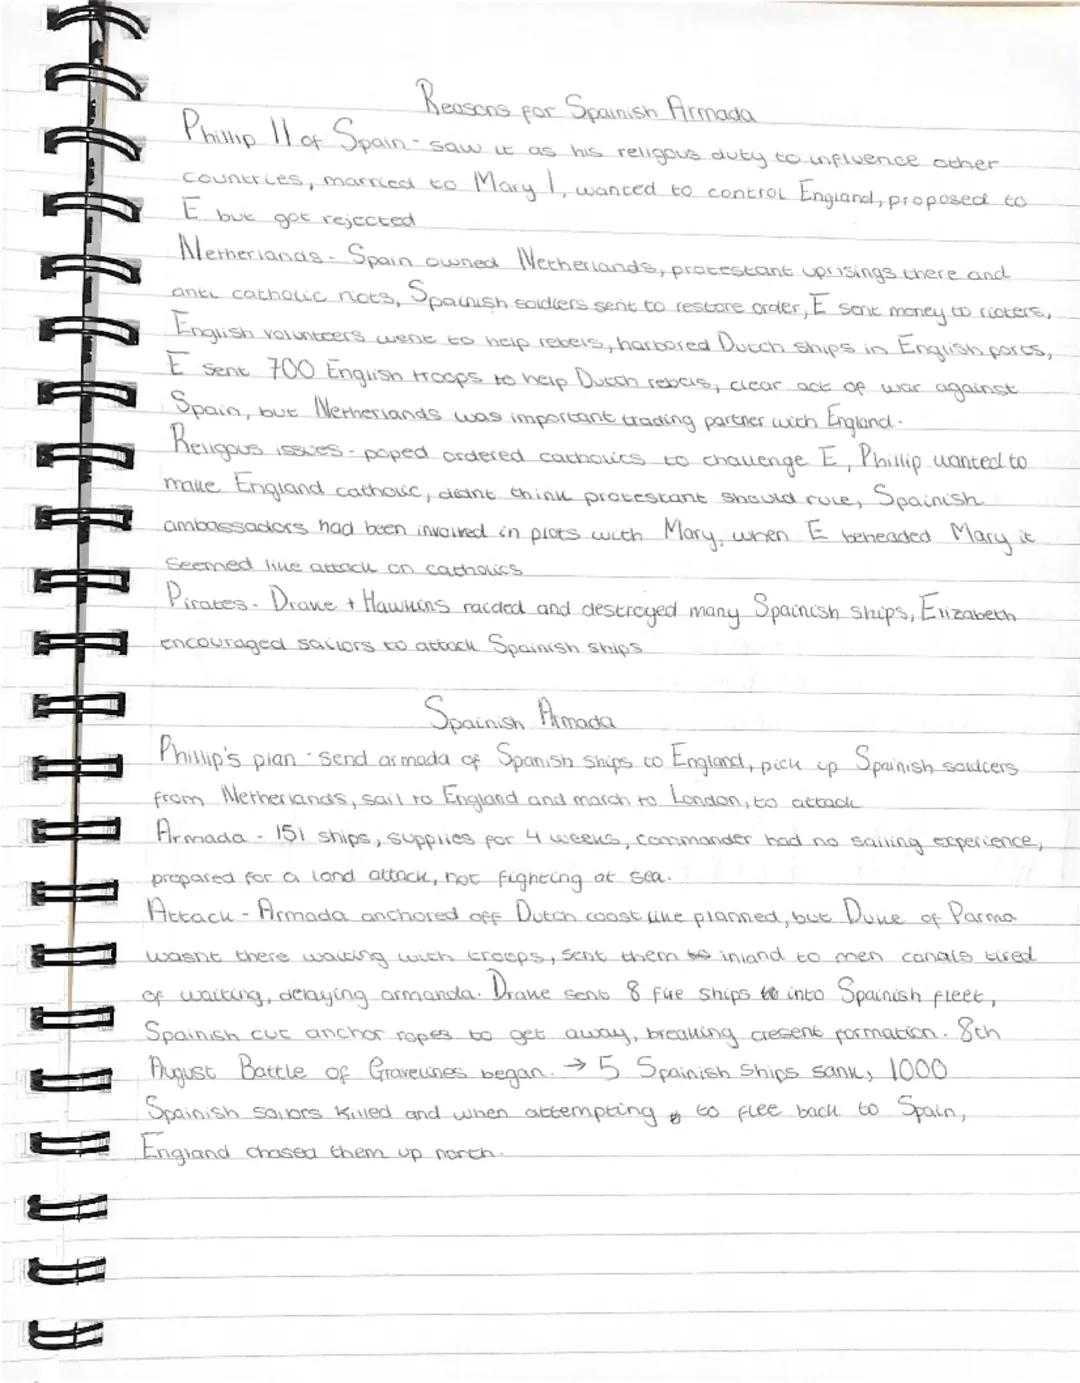 Reasons for Spainish Armada
Phillip II of Spain - saw it as his religous duty to influence other
countries, married to Mary I, wanted to control England, proposed to
E but got rejected
Netherlands - Spain owned Netherlands, protestant uprisings there and
anti catholic riots, Spainish soldiers sent to restore order, E sent money to rioters,
English volunteers went to help rebels, harbored Dutch ships in English ports,
E sent 700 English troops to help Dutch rebels, clear act of war against
Spain, but Netherlands was important trading partner with England.
Religous issues - poped ordered catholics to challenge E, Phillip wanted to
make England catholic, didnt think protestant should rule, Spainish
ambassadors had been involved in plots with Mary, when E beheaded Mary it
seemed like attack on catholics
Pirates - Drake + Hawkins raided and destroyed many Spainish ships, Elizabeth
encouraged sailors to attack Spainish ships
Spainish Armada
Phillip's plan - send armada of Spanish ships to England, pick up Spainish soldiers
from Netherlands, sail to England and march to London, to attack
Armada - 151 ships, supplies for 4 weeks, commander had no sailing experience,
prepared for a land attack, not fighting at sea.
Attack - Armada anchored off Dutch coast like planned, but Duke of Parma
wasnt there waiting with troops, sent them inland to men canals tired
of waiting, delaying armanda. Drake sent 8 fire ships into Spainish fleet,
Spainish cut anchor ropes to get away, breaking cresent formation. 8th
August Battle of Gravelines began. → 5 Spainish ships sank, 1000
Spainish sailors killed and when attempting to flee back to Spain,
England chased them up north.